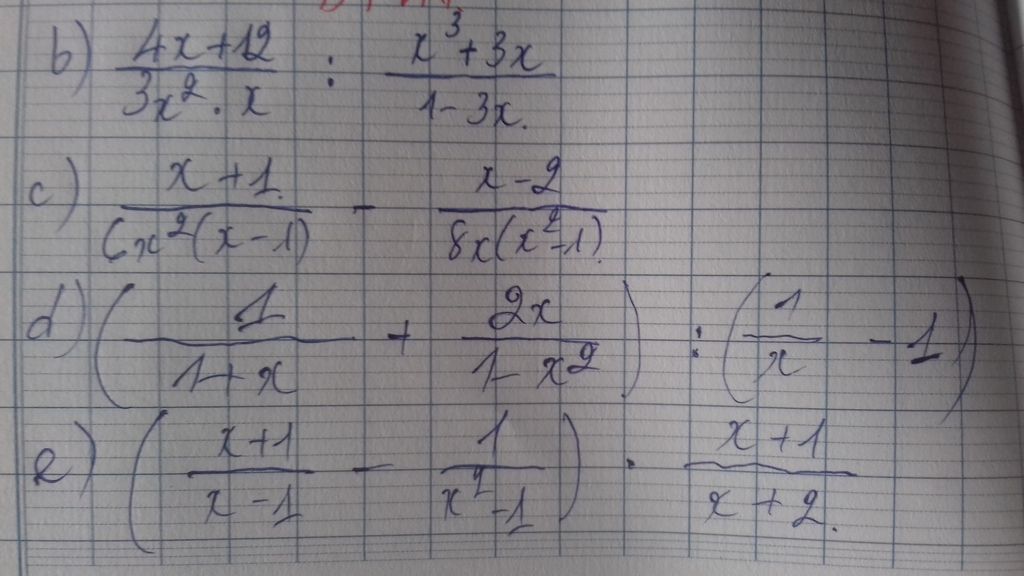 b) (4x+12)/(3x². x) : (x³+3x)/(1-3x.)
c) (x+1.)/(6x²(x-1)) - (x-2)/(8x(x²-1).)
d) (1/(1+x) + 2x/(1-x²)) : (1/x - 1)
e) ((x+1)/(x-1) - 1/(x²-1)) . (x+1)/(x+2.)